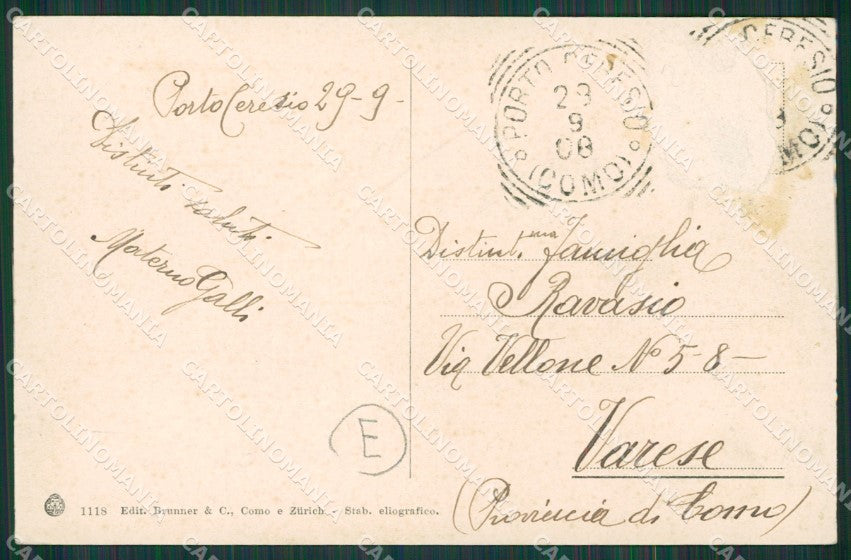 Porto Ceresio 29-9-
Distinti saluti.
Materno Galli
PORTO CERESIO
(COMO)
29
9
08
CERESIO
(COMO)
9
Distint.ma famiglia
Ravasio
Via Vellone No 5-8-
Varese
(Provincia di Como)
E
1118 Edit. Brunner & C., Como e Zürich - Stab. eliografico.
CARTOLINOMANIA